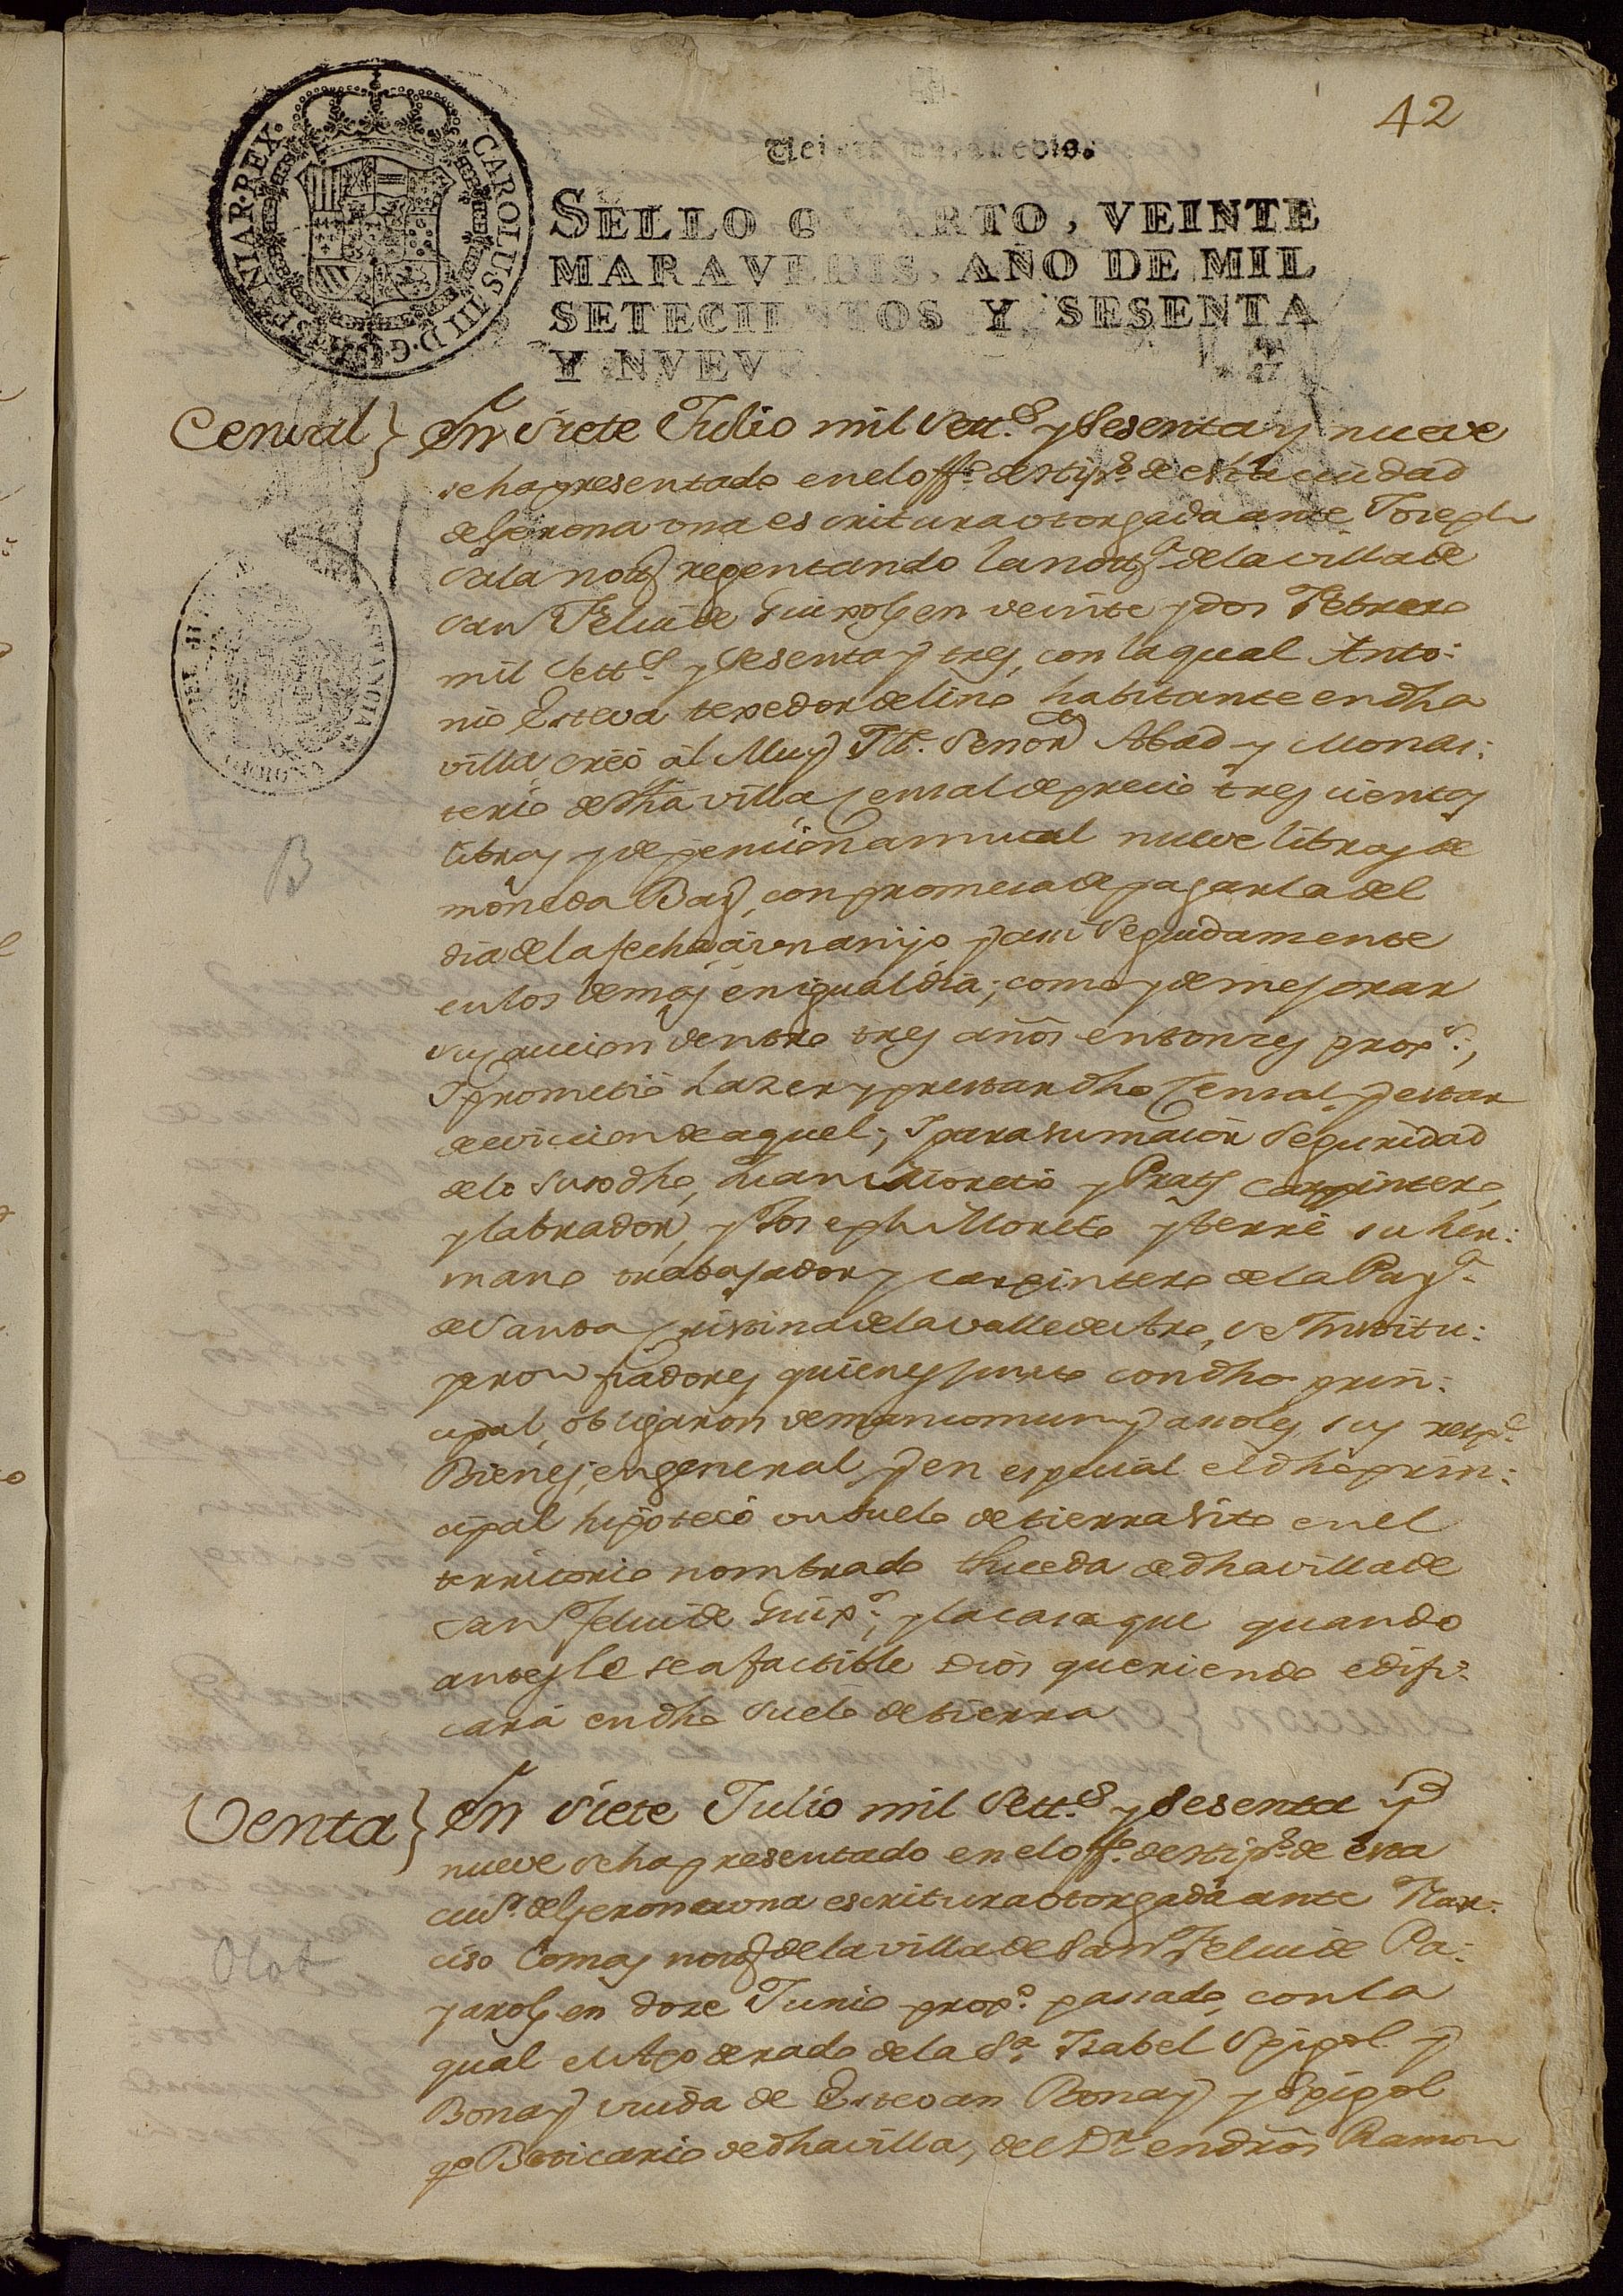 42
CAROLUS III D. G. HISPANIAR. REX.
Veinte maravedis.
SELLO QVARTO, VEINTE
MARAVEDIS, AÑO DE MIL
SETECIENTOS Y SESENTA
Y NVEVE
Censal } En siete Julio mil Sett.s y Sesenta y nueve
se ha presentado en el off.o de Hip.s de esta ciudad
de Gerona una escritura otorgada ante Joseph
Sala nott.o regentando la nott.a de la villa de
San Feliu de Guixols en veinte y dos Febrero
mil Sett.s y Sesenta y tres, con la qual Anto:
nio Esteva texedor de lino habitante en dha
villa creó al Muy Ill.e Señor Abad y Monas:
terio de dha villa Censal de precio tres cientas
libras y de pencion annual nueve libras de
moneda Bar.a, con promesa de pagarla del
dia de la fecha á un año y assi seguidamente
en los demas en igual dia; como y de mejorar
su caucion dentro tres años entonces prox.s,
Y prometió hazer y prestar dho Censal y estar
de eviccion de aquel; Y para su maior seguridad
de lo susodho, Juan Moreto y Prats carpintero,
y labrador, y Joseph Moreto y Ferrè su her:
mano trabajador y carpintero de la Parr.a
de Santa Cristina de la valle de Aro, se Institu:
yeron fiadores quienes junto con dho prin:
cipal, obligaron de mancomun y a solas sus resp.s
Bienes, en general y en especial el dho prin:
cipal hipotecó un suelo de tierra sito en el
territorio nombrado Thueda de dha villa de
San Feliu de Guix.s, y la casa que quando
antes le sea factible Dios queriendo edifi:
cará en dho suelo de tierra
Venta } En siete Julio mil Sett.s y Sesenta y
nueve se ha presentado en el off.o de Hip.s de esta
ciud.d de Gerona una escritura otorgada ante Nar:
ciso Comas nott.o de la villa de San Feliu de Pa:
yarols en doze Junio prox.o passado, con la
qual el Apoderado de la S.a Isabel Spigol y
Bonay viuda de Estevan Bonay y Spigol
q.o Boticario de dha villa, del D.r en dros Ramon
B
Olot